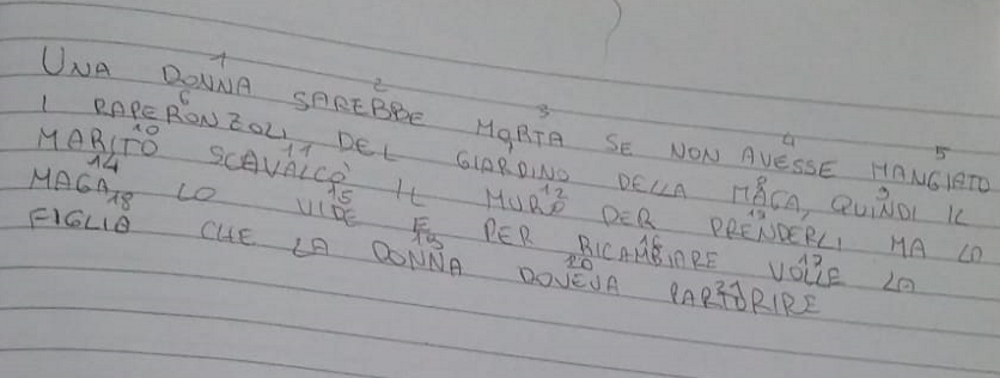 UNA DONNA SAREBBE MORTA SE NON AVESSE MANGIATO
I RAPERONZOLI DEL GIARDINO DELLA MAGA, QUINDI IL
MARITO SCAVALCÒ IL MURO PER PRENDERLI MA LA
MAGA LO VIDE E PER RICAMBIARE VOLLE LA
FIGLIA CHE LA DONNA DOVEVA PARTORIRE